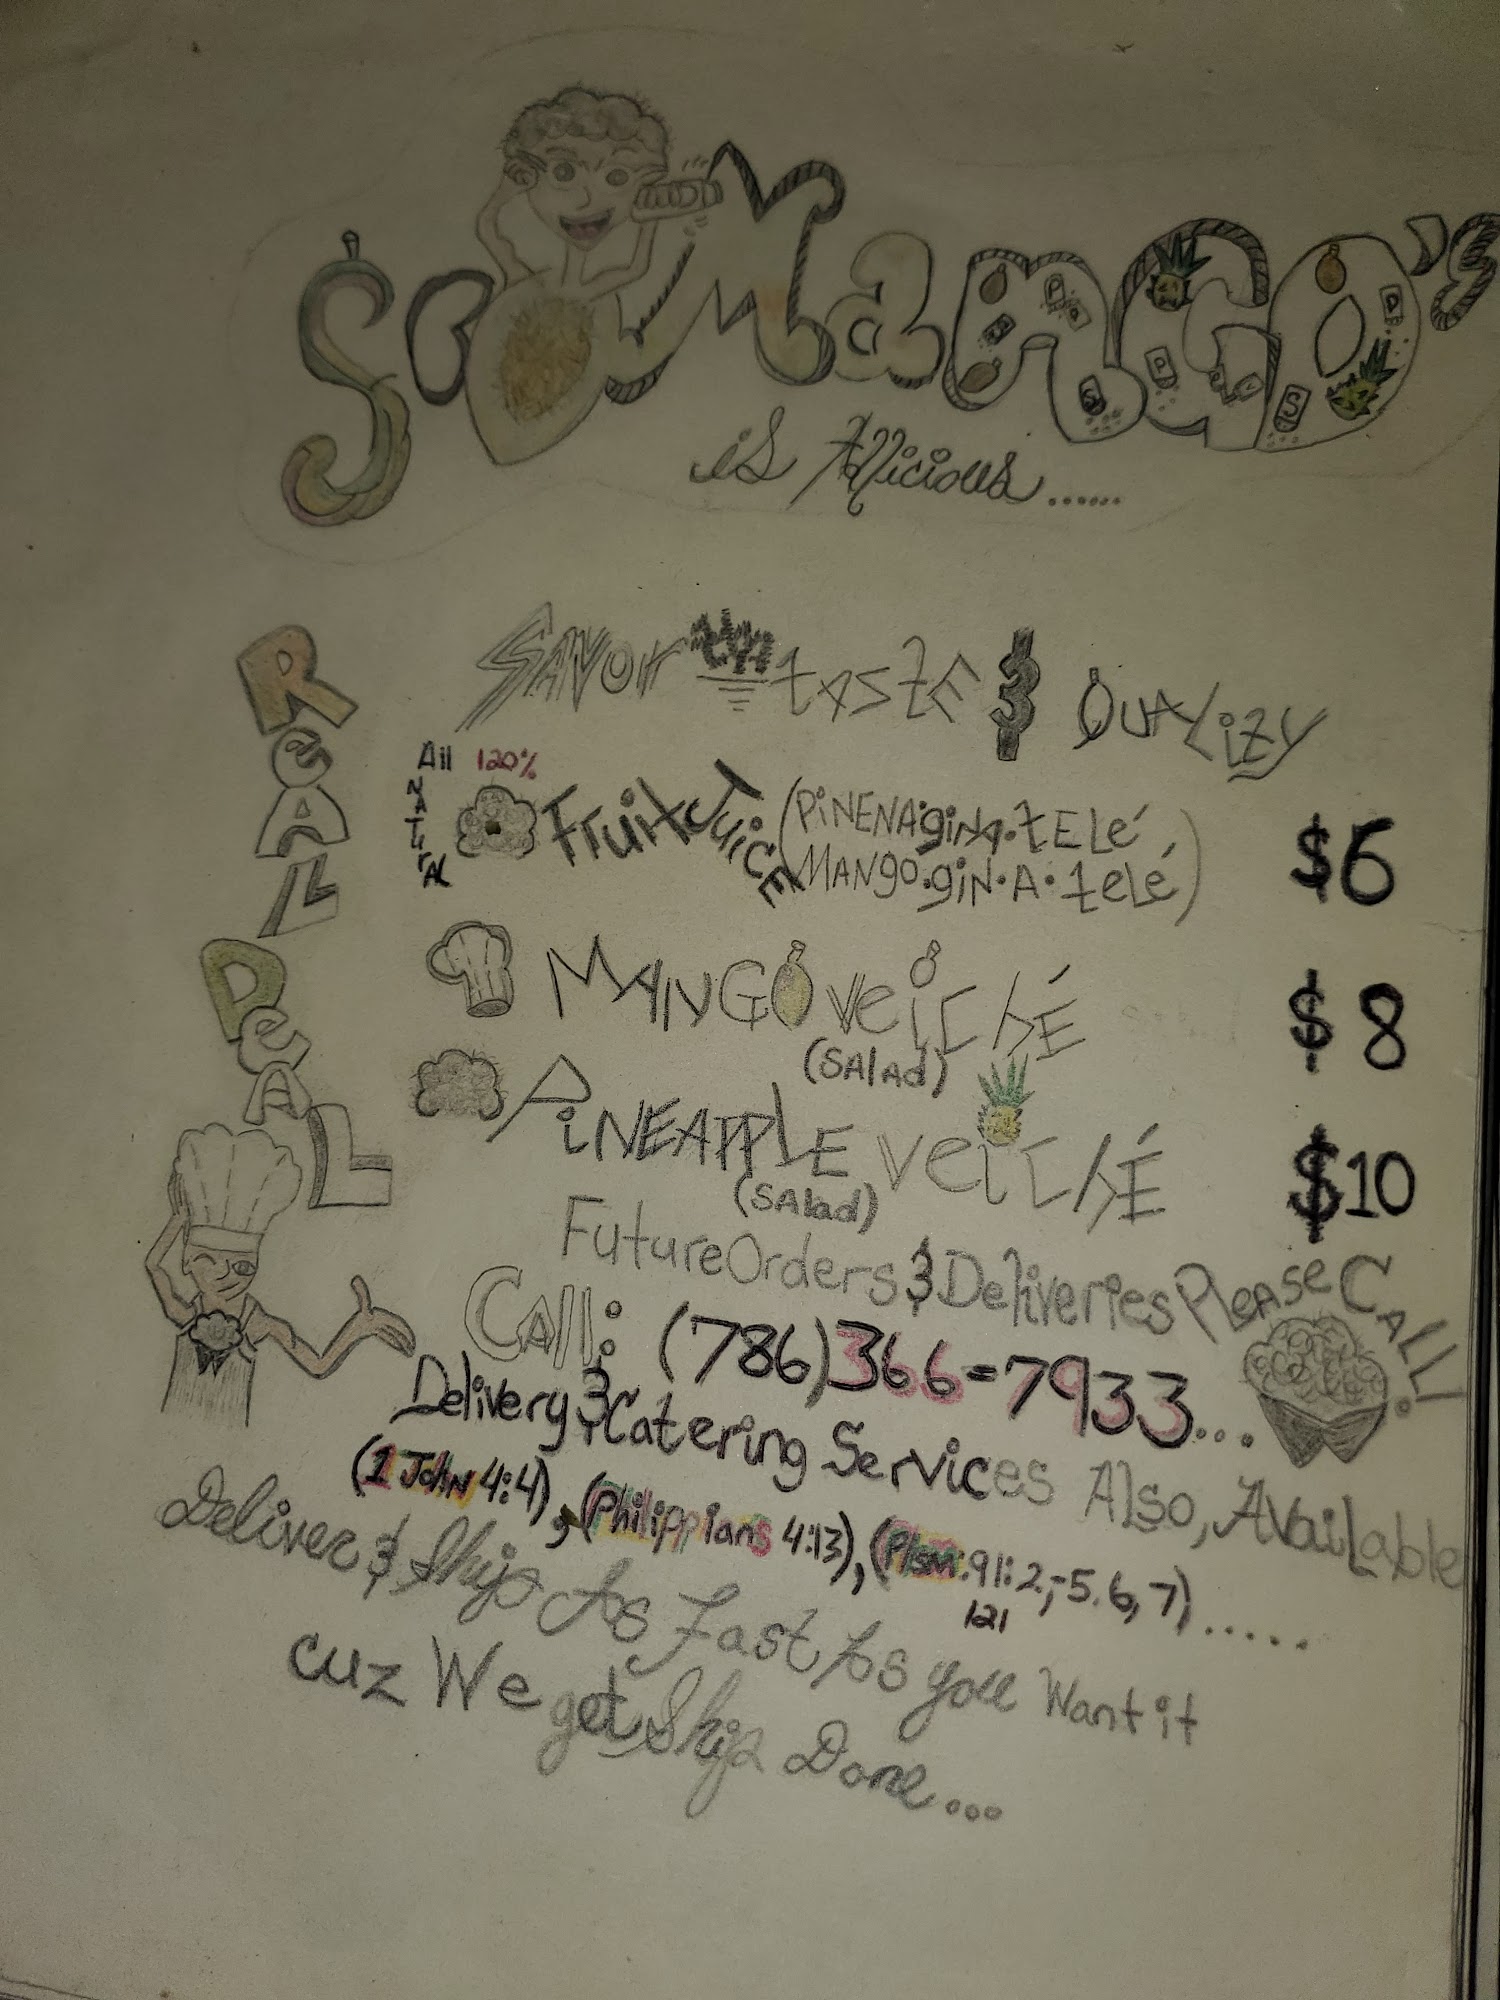 So Mango's
is Allicious......
Real Deal
Savor taste & Quality
All 120%
Natural
Fruit Juice (PiNENAgiNA•tELé,
MANgo•giN•A•telé)
$6
MANGO veichÉ
(SAlad)
$8
PiNEAPPLE veichÉ
(SAlad)
$10
Future Orders & Deliveries Please CALL!
Call: (786)366-7933...
Delivery & Catering Services Also, Available
(1 John 4:4), (Philippians 4:13), (Plsm:91:2,-5.6,7).....
121
Deliver & Ship As Fast As you Want it
cuz We get Ship Done...